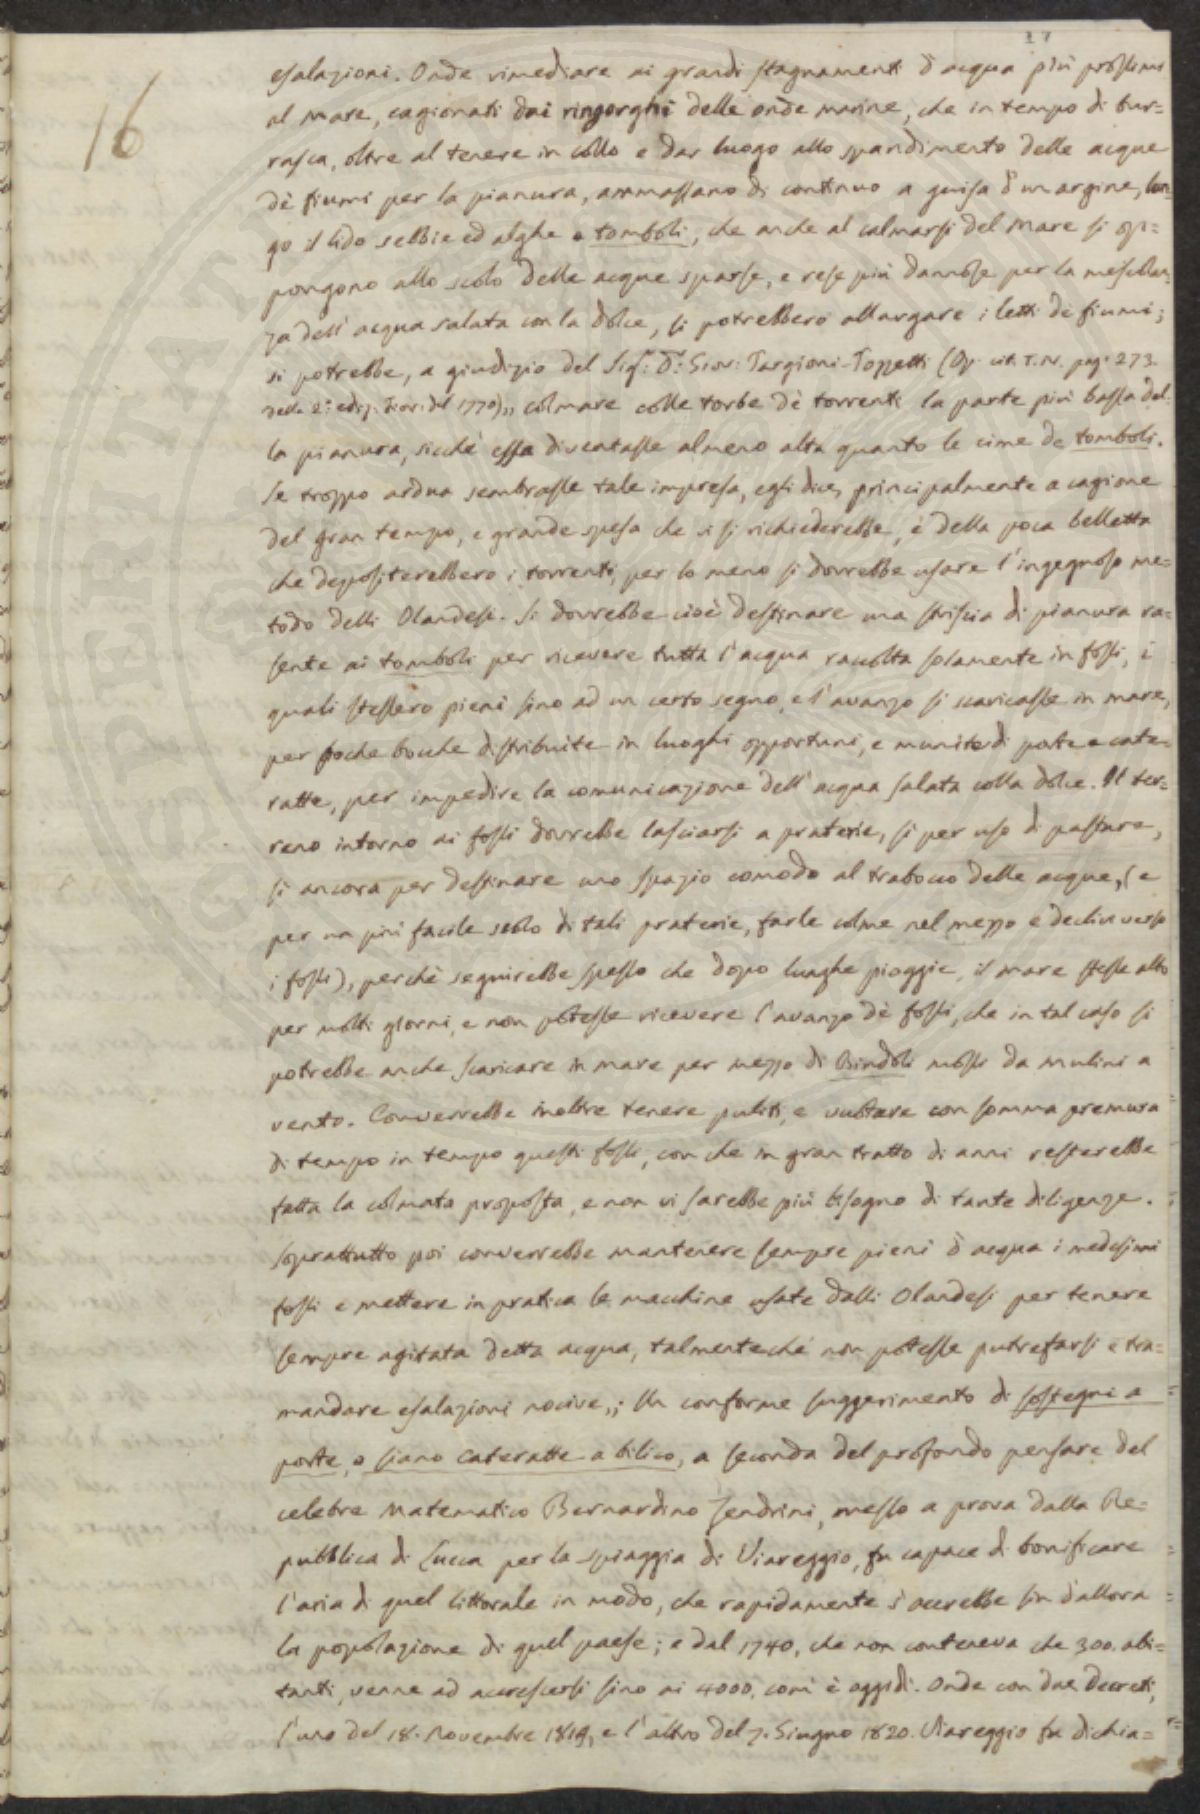 17
16
esalazioni. Onde rimediare ai grandi stagnamenti d'acqua più prossimi
al mare, cagionati dai ringorghi delle onde marine, che in tempo di bur=
rasca, oltre al tenere in collo e dar luogo allo spandimento delle acque
dè fiumi per la pianura, ammassano di continuo a guisa d'un argine, lun=
go il lido sebbie ed alghe o tomboli, che anche al calmarsi del mare si op=
pongono allo scolo delle acque sparse, e rese più dannose per la mescolan
za dell'acqua salata con la dolce, si potrebbero allargare i letti dè fiumi;
si potrebbe, a giudizio del Sig: D: Giov: Targioni-Tozzetti (Op. cit. T. IV. pag. 273.
della 2.a ediz. Fior. del 1770),, colmare colle torbe dè torrenti la parte più bassa del
la pianura, sicchè essa diventasse almeno alta quanto le cime de tomboli.
Se troppo ardua sembrasse tale impresa, egli dice, principalmente a cagione
del gran tempo, e grande spesa che vi si richiederebbe, e della poca belletta
che depositerebbero i torrenti, per lo meno si dovrebbe usare l'ingegnoso me=
todo delli Olandesi. Si dovrebbe cioè destinare una striscia di pianura ra=
sente ai tomboli per ricevere tutta l'acqua raccolta solamente in fossi, i
quali stessero pieni sino ad un certo segno, e l'avanzo si scaricasse in mare,
per poche bocche distribuite in luoghi opportuni, e munite di porte e cate=
ratte, per impedire la comunicazione dell'acqua salata colla dolce. Il ter=
reno intorno ai fossi dovrebbe lasciarsi a praterie, sì per uso di pasture,
sì ancora per destinare uno spazio comodo al trabocco delle acque, (e
per un più facile scolo di tali praterie, farle colme nel mezzo e declivi verso
i fossi), perchè seguirebbe spesso che dopo lunghe pioggie, il mare stesse alto
per molti giorni, e non potesse ricevere l'avanzo dè fossi, che in tal caso si
potrebbe anche scaricare in mare per mezzo di Bindoli mossi da mulini a
vento. Converrebbe inoltre tenere puliti, e vuotare con somma premura
di tempo in tempo questi fossi, con che in gran tratto di anni resterebbe
fatta la colmata proposta, e non vi sarebbe più bisogno di tante diligenze.
Soprattutto poi converrebbe mantenere sempre pieni d'acqua i medesimi
fossi e mettere in pratica le macchine usate dalli Olandesi per tenere
sempre agitata detta acqua, talmentechè non potesse putrefarsi e tra=
mandare esalazioni nocive,,; Un conforme suggerimento di sostegni a
porte, o siano cateratte a bilico, a seconda del profondo pensare del
celebre Matematico Bernardino Zendrini, messo a prova dalla Re=
pubblica di Lucca per la spiaggia di Viareggio, fu capace di bonificare
l'aria di quel littorale in modo, che rapidamente s'accrebbe sin d'allora
la popolazione di quel paese; e dal 1740, che non conteneva che 300. abi=
tanti, venne ad accrescersi sino ai 4000. com'è oggidì. Onde con due decreti,
l'uno del 18. Novembre 1819, e l'altro del 7. Giugno 1820. Viareggio fu dichia=